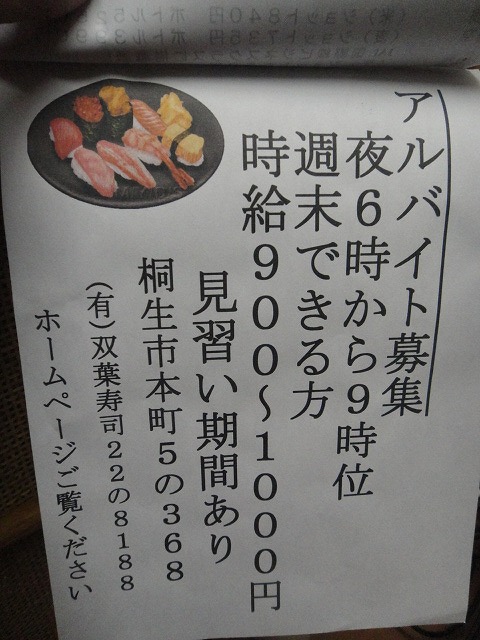 アルバイト募集
夜6時から9時位
週末できる方
時給900~1000円
見習い期間あり
桐生市本町5の368
(有)双葉寿司22の8188
ホームページご覧ください